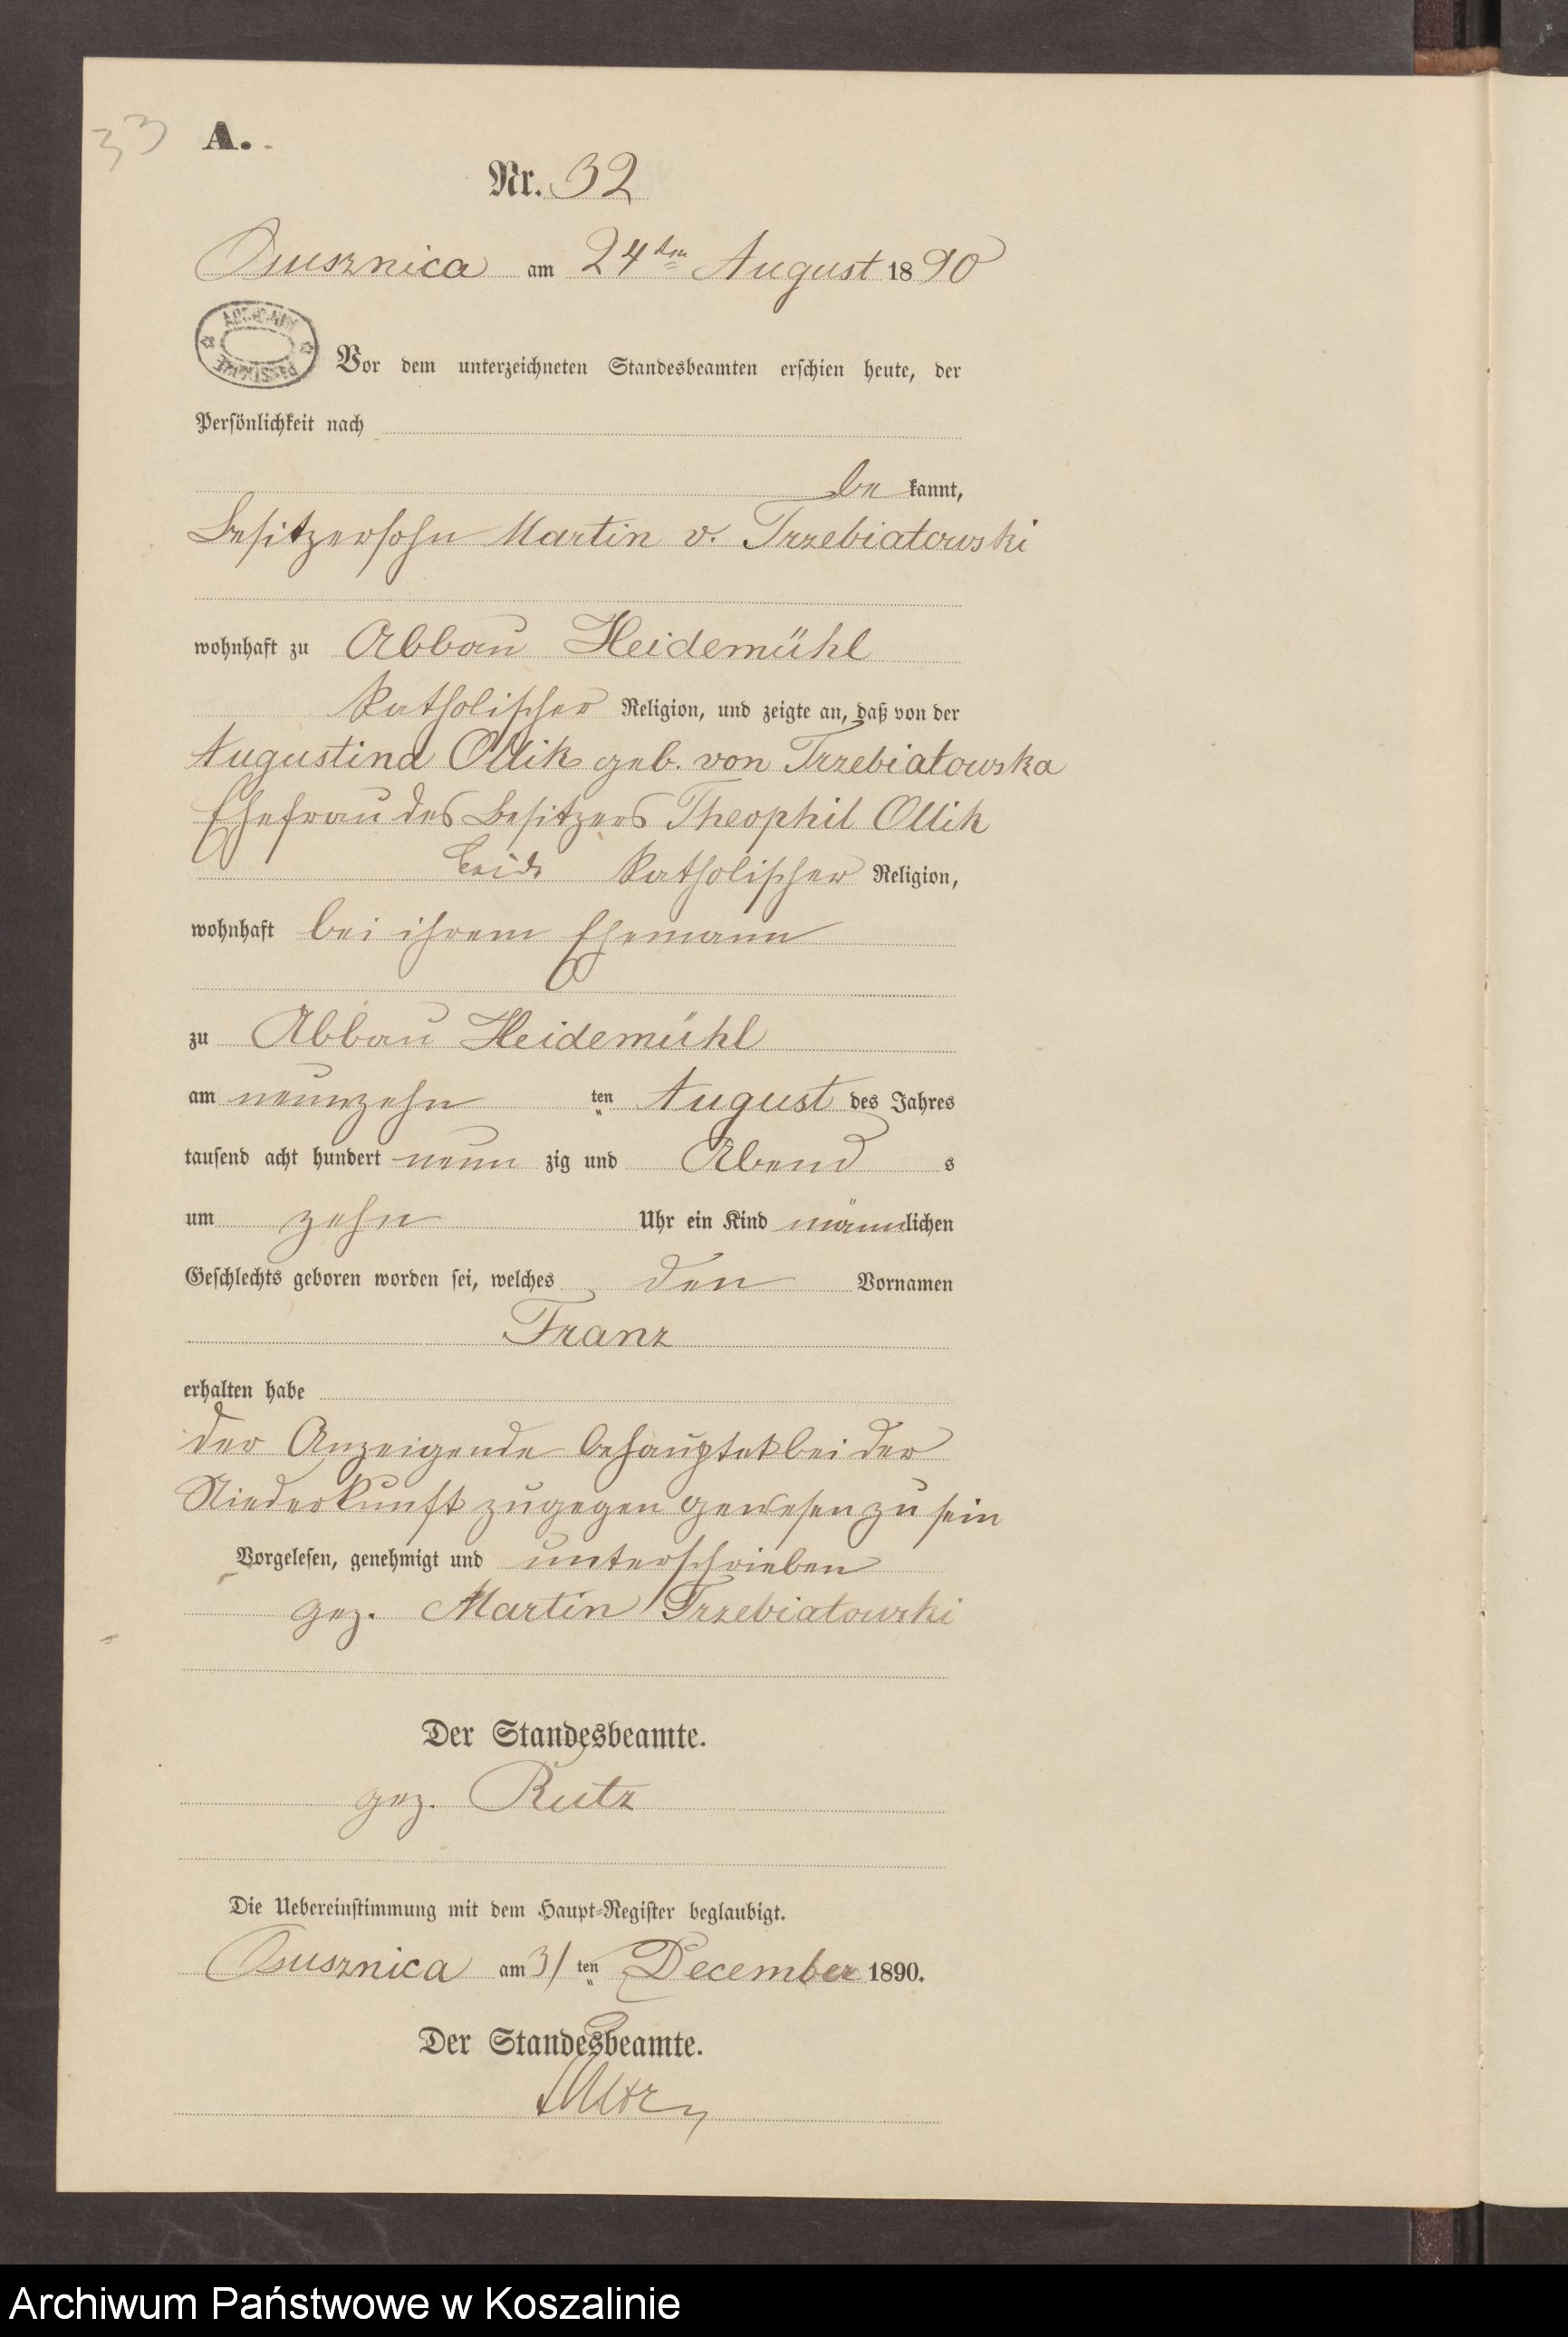 33 A.
Nr. 32
Ossusznica am 24ten August 1890
Vor dem unterzeichneten Standesbeamten erschien heute, der
Persönlichkeit nach
be kannt,
Besitzersohn Martin v. Trzebiatowski
wohnhaft zu Abbau Heidemühl
katholischer Religion, und zeigte an, daß von der
Augustina Ollik geb. von Trzebiatowska
Ehefrau des Besitzers Theophil Ollik
beide katholischer Religion,
wohnhaft bei ihrem Ehemann
zu Abbau Heidemühl
am neunzehn ten August des Jahres
tausend acht hundert neun zig und Abend s
um zehn Uhr ein Kind männlichen
Geschlechts geboren worden sei, welches den Vornamen
Franz
erhalten habe
der Anzeigende behauptet bei der
Niederkunft zugegen gewesen zu sein
Vorgelesen, genehmigt und unterschrieben
gez. Martin Trzebiatowski
Der Standesbeamte.
gez. Rutz
Die Uebereinstimmung mit dem Haupt-Register beglaubigt.
Ossusznica am 31 ten December 1890.
Der Standesbeamte.
Archiwum Państwowe w Koszalinie